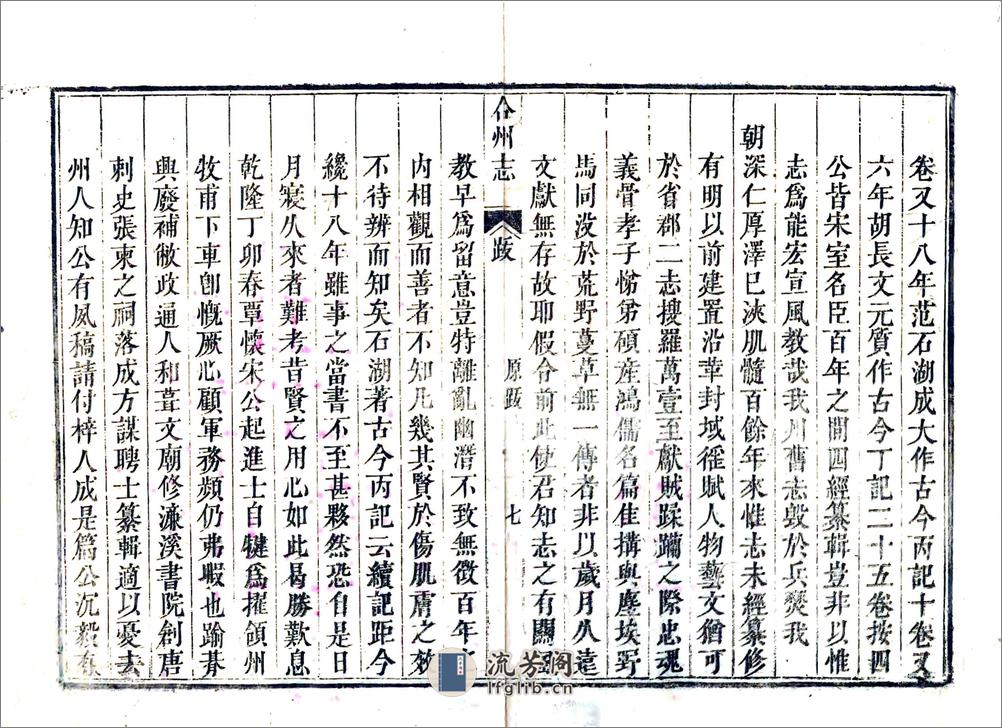 卷又十八年范石湖成大作古今丙記十卷又
六年胡長文元質作古今丁記二十五卷按四
公皆宋室名臣百年之間四經纂輯豈非以惟
志爲能宏宣風教哉我州舊志毀於兵燹我
朝深仁厚澤巳浹肌髓百餘年來惟志未經纂修
有明以前建置沿革封域徭賦人物藝文猶可
於省郡二志搜羅萬壹至獻賊蹂躪之際忠魂
義骨孝子悌弟碩產鴻儒名篇佳搆與塵埃野
馬同没於荒野蔓草無一傳者非以歲月久遠
文獻無存故耶假令前此使君知志之有關
合州志 跋 原跋 七
教早爲留意豈特離亂幽潛不致無徵百年
内相觀而善者不知凡幾其賢於傷肌膚之效
不待辨而知矣石湖著古今丙記云續記距今
纔十八年雖事之當書不至甚夥然恐自是日
月寖久來者難考昔賢之用心如此曷勝歎息
乾隆丁卯春覃懷宋公起進士自犍爲擢領州
牧甫下車卽慨厥心顧軍務頻仍弗暇也踰朞
興廢補敝政通人和葺文廟修濂溪書院創唐
刺史張柬之祠落成方謀聘士纂輯適以憂去
州人知公有夙稿請付梓人成是篇公沉毅有
流芳閣
lfglib.cn